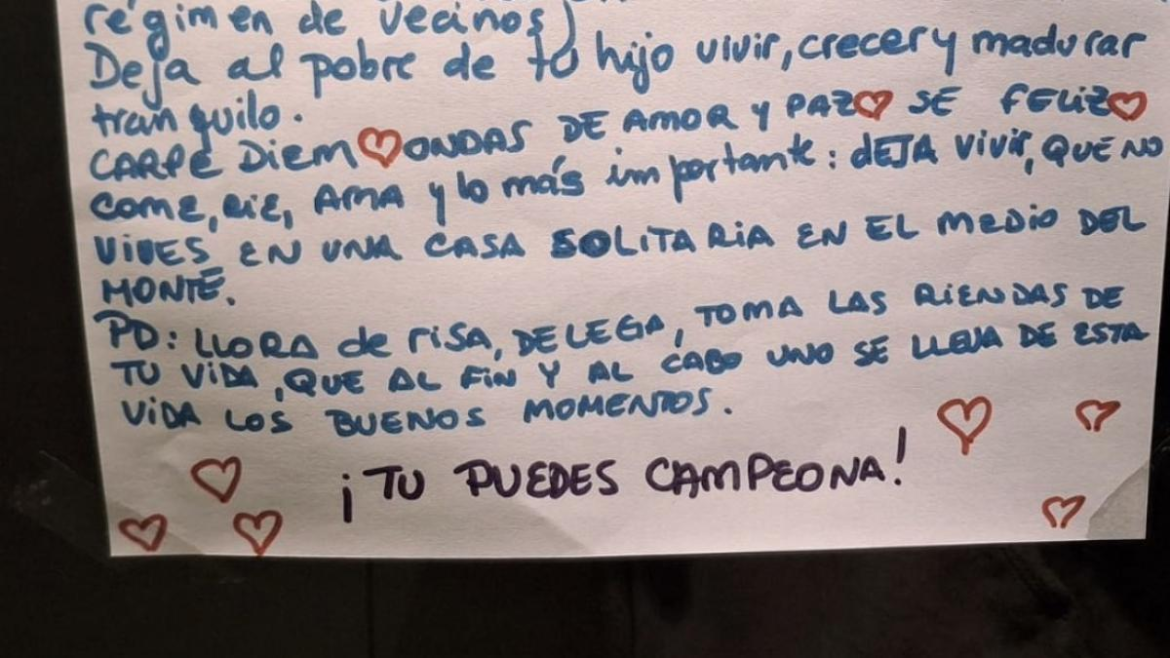 régimen de vecinos)
Deja al pobre de tu hijo vivir, crecer y madurar
tranquilo.
CARPE DIEM ONDAS DE AMOR Y PAZ SE FELIZ
COME, RIE, AMA y lo más importante: DEJA VIVIR, QUE NO
VIVES EN UNA CASA SOLITARIA EN EL MEDIO DEL
MONTE.
PD: LLORA de risa, DELEGA, TOMA LAS RIENDAS DE
TU VIDA, QUE AL FIN Y AL CABO UNO SE LLEVA DE ESTA
VIDA LOS BUENOS MOMENTOS.
¡TU PUEDES CAMPEONA!